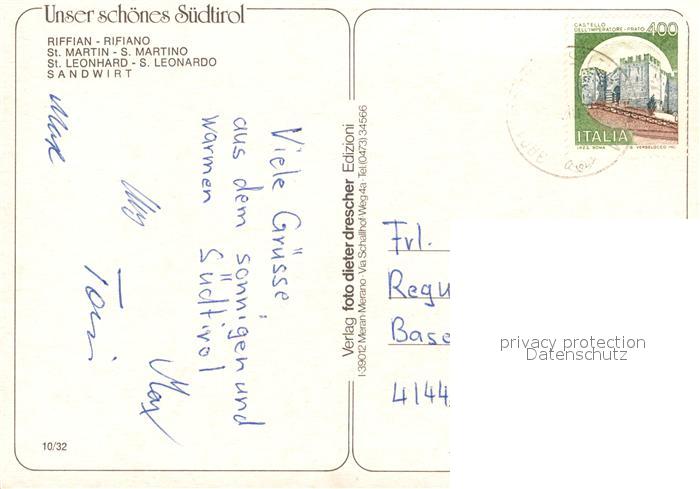 Unser schönes Südtirol
RIFFIAN - RIFIANO
St. MARTIN - S. MARTINO
St. LEONHARD - S. LEONARDO
SANDWIRT
Viele Grüsse
aus dem sonnigen und
warmen Südtirol
Max
Toni
10/32
Verlag foto dieter drescher Edizioni
I-39012 Meran Merano · Via Schallhof Weg 4a · Tel. (0473) 34566
CASTELLO
DELL'IMPERATORE - PRATO
400
ITALIA
I.P.Z.S. ROMA
Frl.
Regu
Base
4144
privacy protection
Datenschutz